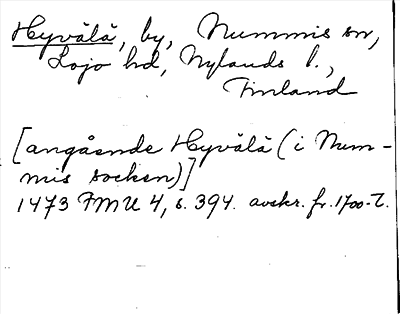 Hyvälä, by, Nummis sn,
Lojo hd, Nylands l.,
Finland
[angående Hyvälä (i Num-
mis socken)]
1473 FMU 4, s. 394. avskr. fr. 1700-t.